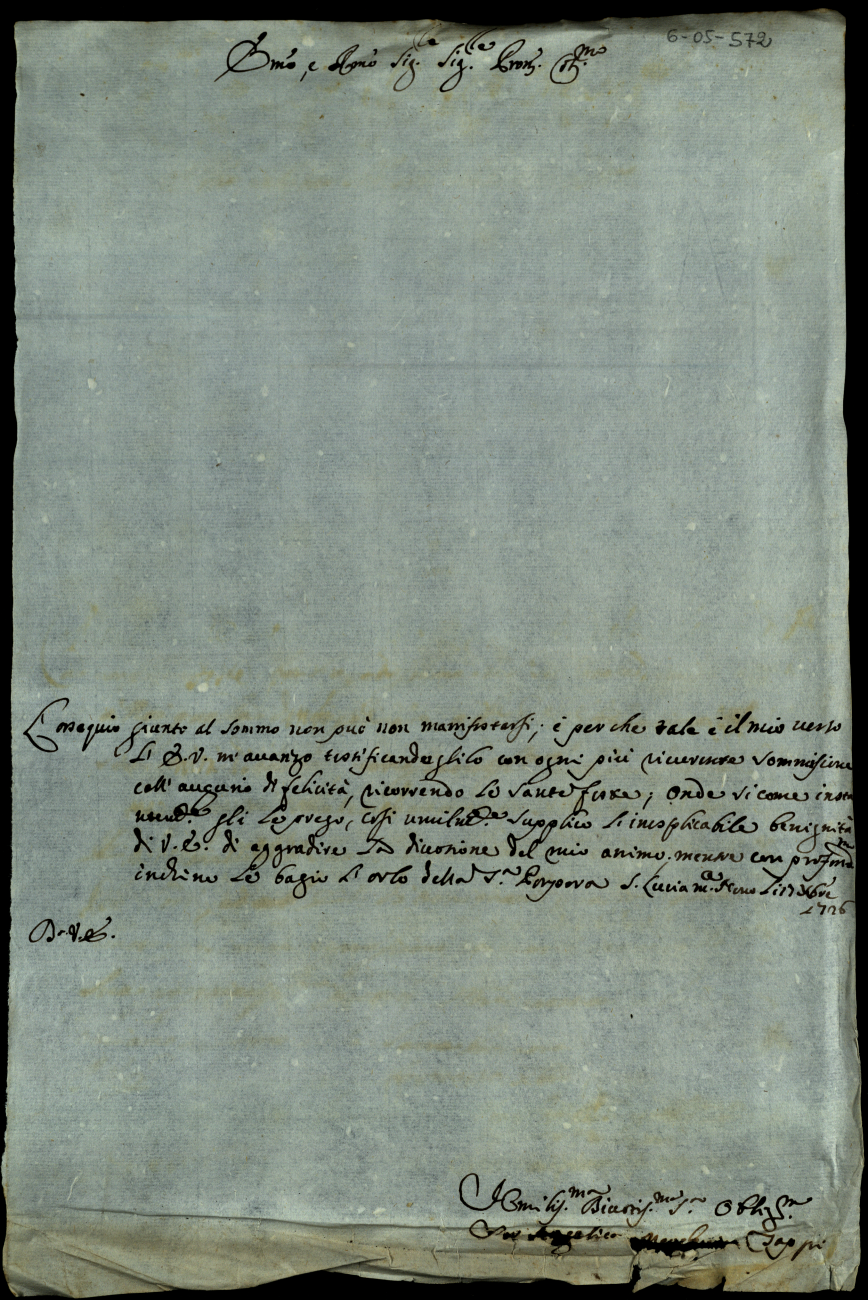 6-05-572
Em̃o, e Rm̃o Sig.re Sig.re Pron. Col.mo
L'ossequio giunto al sommo non può non manifestarsi; e perche tale è il mio verso
L'E.V. m'avanzo testificandoglilo con ogni più riverente sommissione
coll'augurio di felicità, ricorrendo le sante feste; onde si come
gli le prego, così umilmte supplico l'inesplicabile benignità
di V.E. di aggradire la divozione del mio animo. mentre con profondo
inchino le bagio l'orlo della S.a Porpora S. Lucia
1726
D. V.E.
Umilis.ma Divotis.ma S.a Oblig.ma
Angelica Zappi